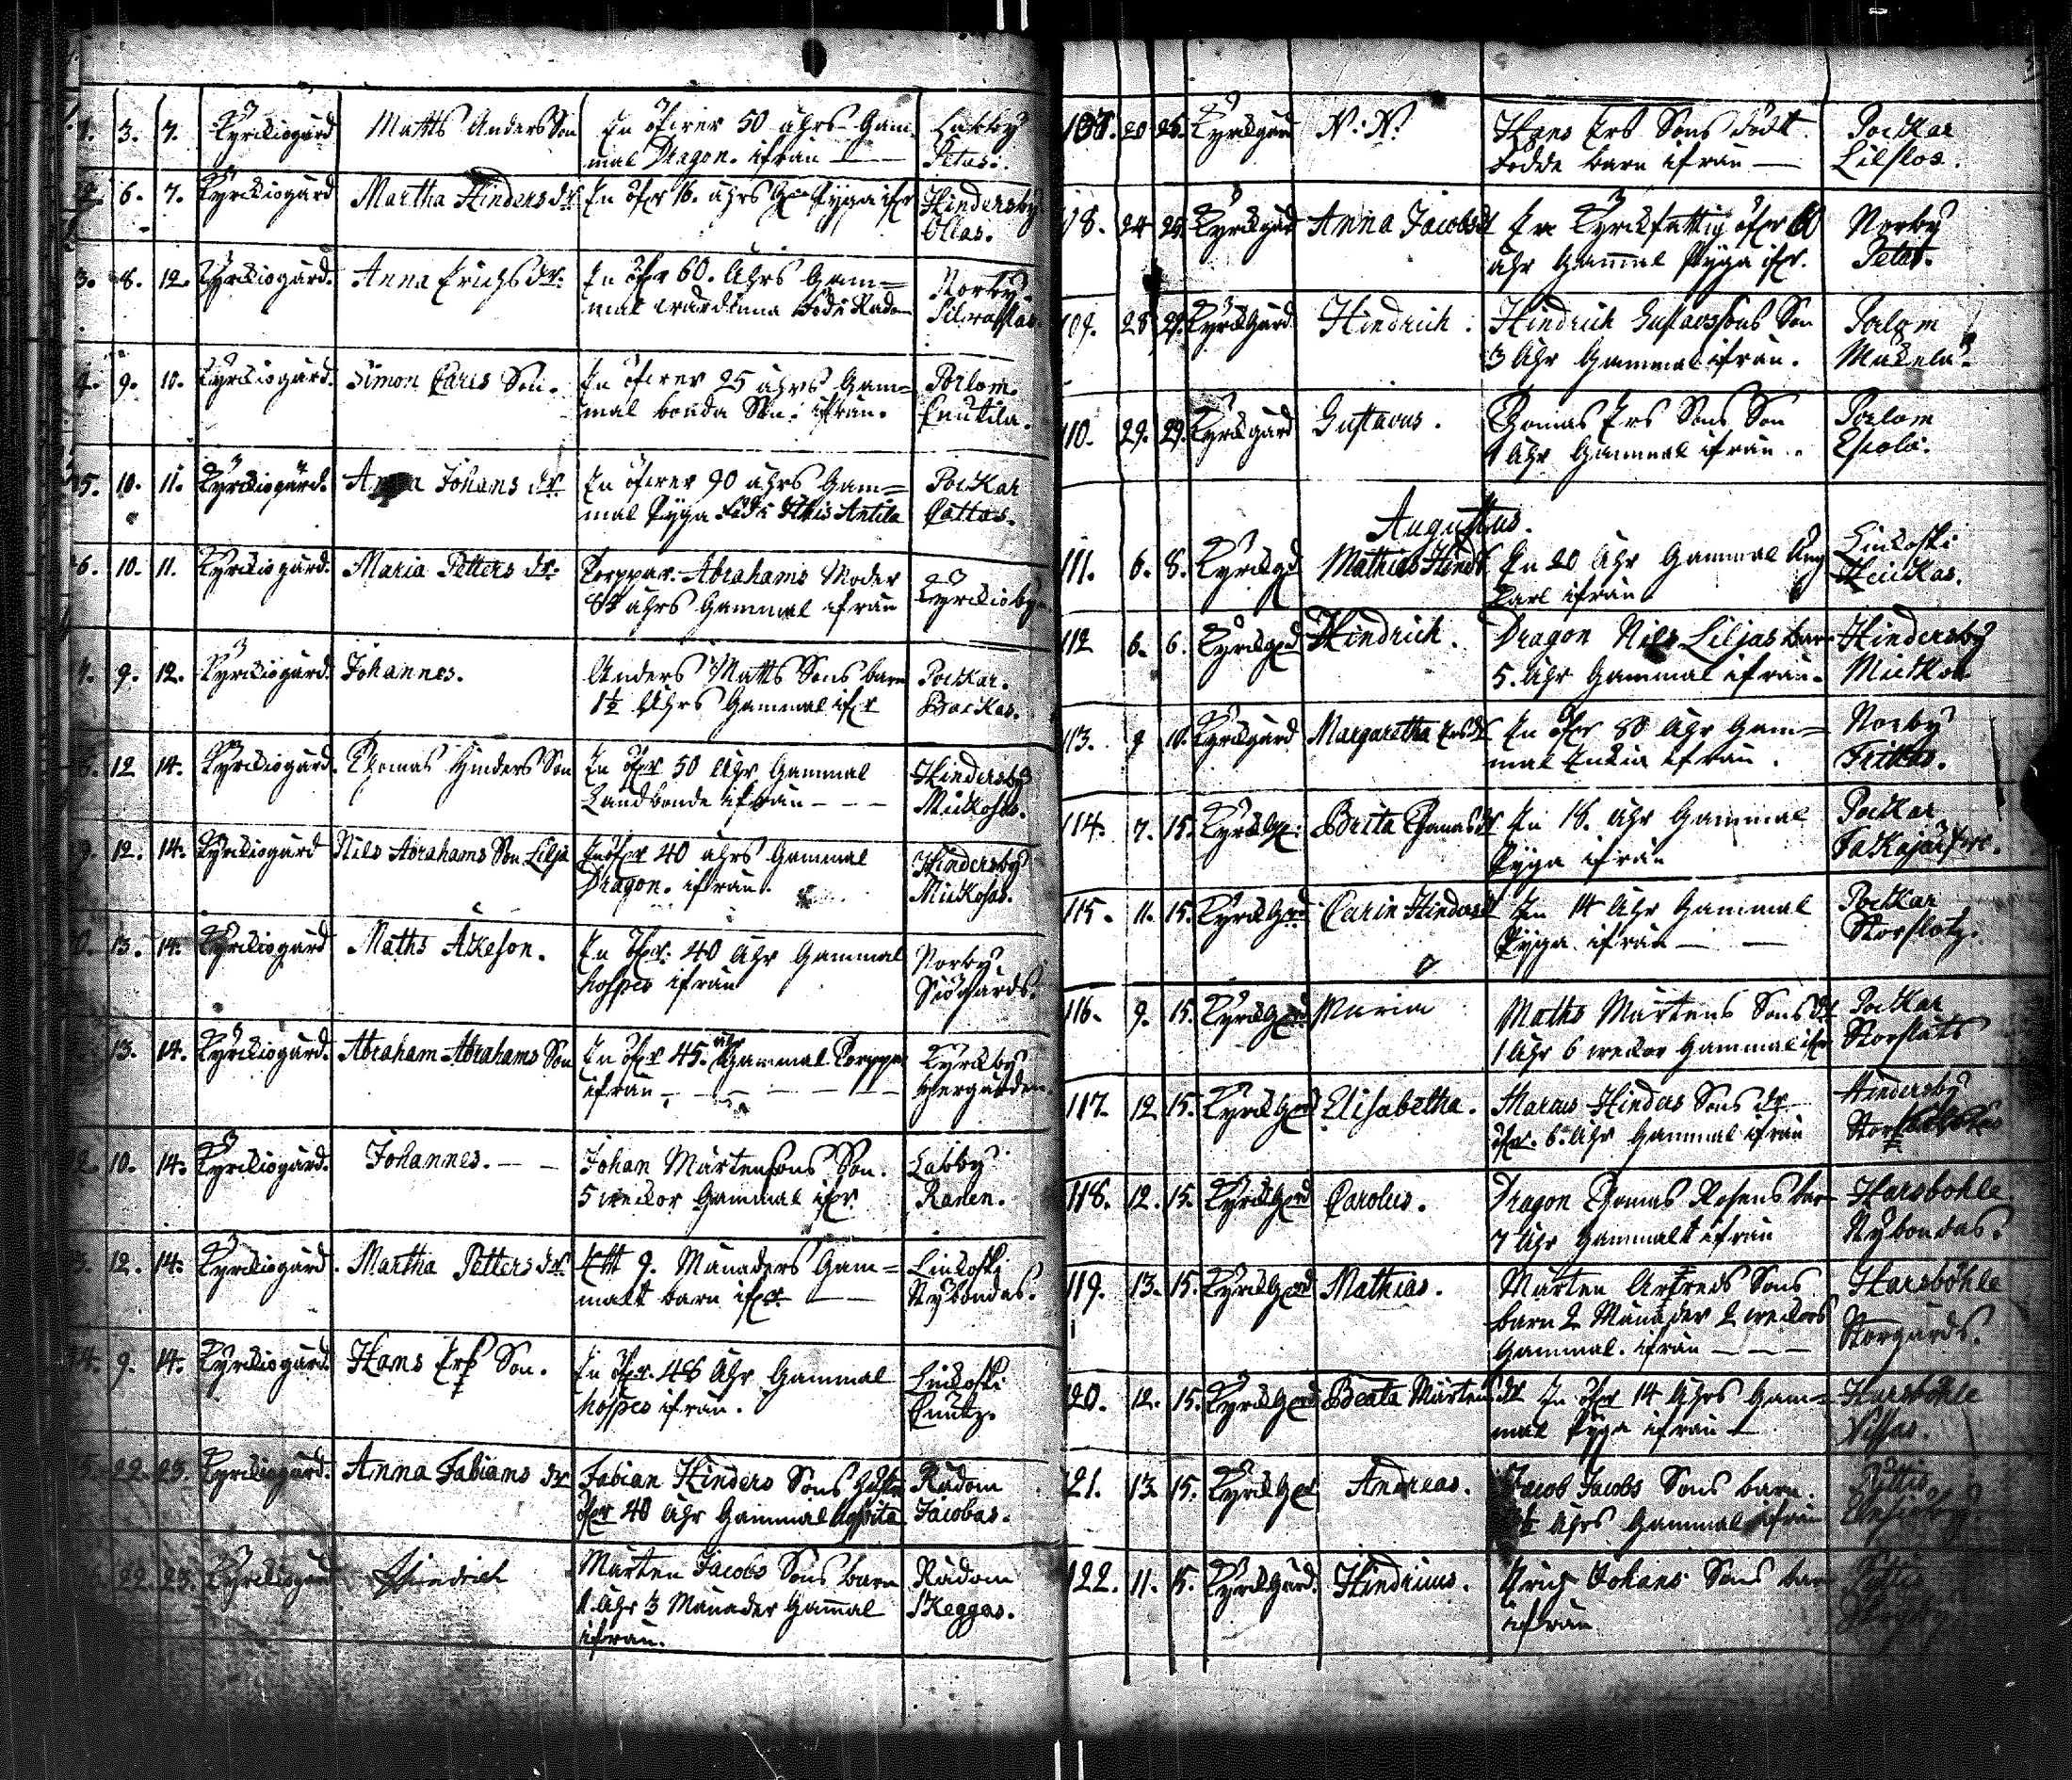 1. 3. 7. Kyrckiogård Matts Anders Son En öfwer 50 åhrs Gam-
mal Dragon. ifrån Labby
Petas.
2. 6. 7. Kyrckiogård Martha Hinders dr. En öfr 16. åhrs Gl Pyga ifr Hindersby
Ollas.
3. 8. 12. Kyrckiogård. Anna Erichs dr. En öfr 60. Åhrs Gam=
mal Norby
4. 9. 10. Kyrckiogård. Simon Cars Son. En öfwer 25 åhrs Gam=
mal bonda Son. ifrån. Porlom.
Cnutila.
5. 10. 11. Kyrckiogård. Anna Johans dr. En öfwer 90 åhrs Gam=
mal Pyga Antila Pockar
Cattas.
6. 10. 11. Kyrckiogård. Maria Petters dr. Torppar. Abrahams Moder
åhrs Gammal ifrån Kyrckioby
9. 12. Kyrckiogård. Johannes. Anders Matts Sons barn
1½ Åhrs Gammal ifr Pockar.
Backas.
12 14. Kyrckiogård. Thomas Hinders Son En öfr 50 Åhr Gammal
Landbonde ifrån - - - Hindersby
Mickosas.
9. 12. 14. Kyrckiogård Nils Abrahams Son Lilja En öfr 40 åhrs Gammal
Dragon. ifrån. Hindersby
Mickosas.
0. 13. 14. Kyrckiogård Maths Åkeson. En öfr. 40 Åhr Gammal
hospes ifrån Norby
Siögårds.
13. 14. Kyrckiogård. Abraham Abrahams Son En öfr 45. åhr Gammal Torppar
ifrån - - - Kyrckby
2. 10. 14. Kyrckiogård. Johannes. - - Johan Mårtensons Son.
5 weckor Gammal ifr. Labby
Ranen.
3. 12. 14. Kyrckiogård. Martha Petters dr. Ett 9. Månaders Gam=
malt barn ifr. Linkoski
Nybondas.
14. 9. 14. Kyrckiogård. Hans Ers Son. En öfr. 48 Åhr Gammal
hospes ifrån. Linkoski
Cnutz.
5. 22. 23. Kyrckiogård. Anna Fabians dr Fabian Hinders Sons
öfr 40 Åhr Gammal Hospita Rådom
Jacobas.
22. 23. Kyrckiogård Hindrich Mårten Jacobs Sons barn
1 Åhr 3 Månader Gamal
ifrån. Rådom
Skeggas.
20 25. Kyrckgård N: N: Hans Ers Sons dödt
födde barn ifrån — Pockar
Lilslos.
108. 24 25. Kyrckgård Anna Jacobs dr En Kyrckfattig öfr 60
åhr Gamal Pyga ifr. Norby
Petas.
109. 28 29. Kyrckgård Hindrich. Hindrich Gustavssons Son
3 Åhr Gammal ifrån. Porlom
Mäkelä.
110. 29. 29. Kyrckgård Gustavus. Thomas Ers Sons Son
1 Åhr Gammal ifrån. Porlom
Eskola.
Augustus.
111. 6. 8. Kyrckgd Mathias Hinds En 20 Åhr Gammal Ung
Karl ifrån Linkoski
112 6. 6. Kyrckgrd Hindrich. Dragon Nils Liljas barn
5. Åhr Gammal ifrån. Hindersby
113. 9 10. Kyrckgård Margaretha Ers dr En öfr 80 Åhr Gam=
mal Enkia ifrån. Norby
114. 7. 15. Kyrckg. Brita Thomas dr En 18. Åhr Gammal
Pyga ifrån Pockar
115. 11. 15. Kyrckgrd Carin Hinders dr En 14 Åhr Gammal
Pyga ifrån — — Pockar
Storslotz.
116. 9. 15. Kyrckgård Maria Maths Mårtens Sons dr
1 Åhr 6 weckor Gammal ifr Pockar
Storslots
117. 12 15. Kyrckgrd Elisabetha. Marcus Hinders Sons dr
öfr. 6. Åhr Gammal ifrån Hindersby
118. 12. 15. Kyrckgård Carolus. Dragon Thomas Rosens barn
7 Åhr Gammalt ifrån Harsbohle
Nybondas.
119. 13. 15. Kyrckgård Mathias. Mårten Arfreds Sons
barn 2 Månader 2 weckors
Gammal. ifrån - - - Harsbohle
Storgårds.
120. 12. 15. Kyrckgård Beata Mårtens dr En öfr 14 Åhrs Gam=
mal Pyga ifrån Harsbohle
Nissas.
121. 13. 15. Kyrckgrd Andreas. Jacob Jacobs Sons barn.
Åhrs Gammal ifrån Kuttis
122. 11. 15. Kyrckgård. Hindricus. Erich Johans Sons barn
ifrån